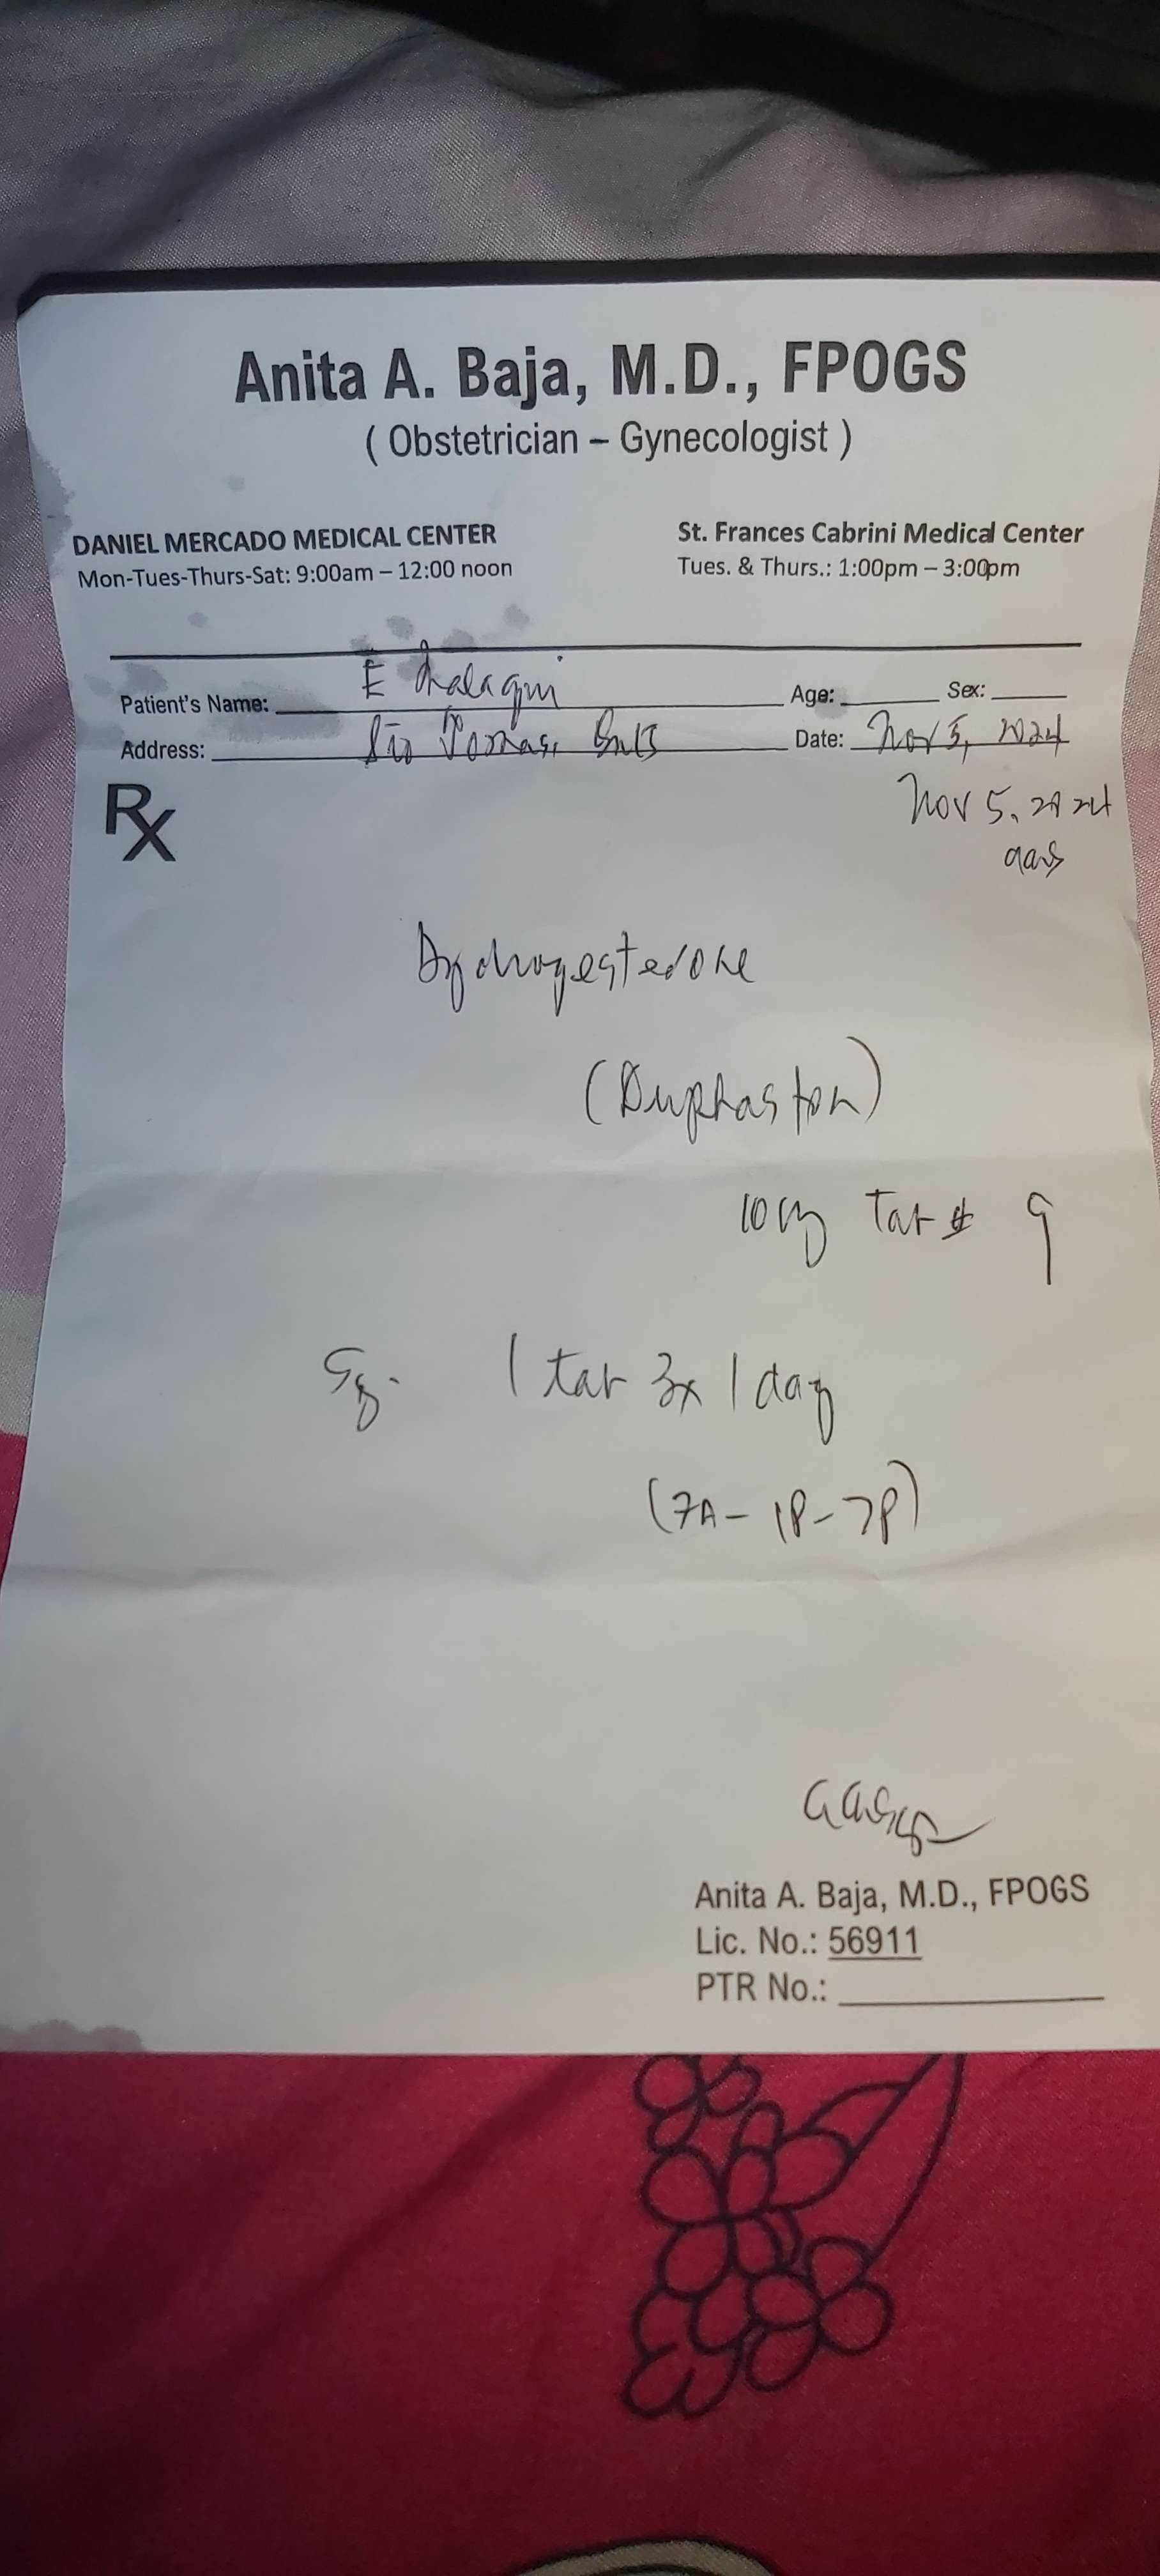 Anita A. Baja, M.D., FPOGS
( Obstetrician – Gynecologist )
DANIEL MERCADO MEDICAL CENTER
Mon-Tues-Thurs-Sat: 9:00am – 12:00 noon
St. Frances Cabrini Medical Center
Tues. & Thurs.: 1:00pm – 3:00pm
Patient's Name: E Age: Sex:
Address: Sto Tomas, Date: Nov 5, 2024
Rx
Nov 5, 2024
Dydrogesterone
(Duphaston)
10mg Tab # 9
Sig. 1 tab 3x 1 day
(7A - 1P - 7P)
Anita A. Baja, M.D., FPOGS
Lic. No.: 56911
PTR No.: